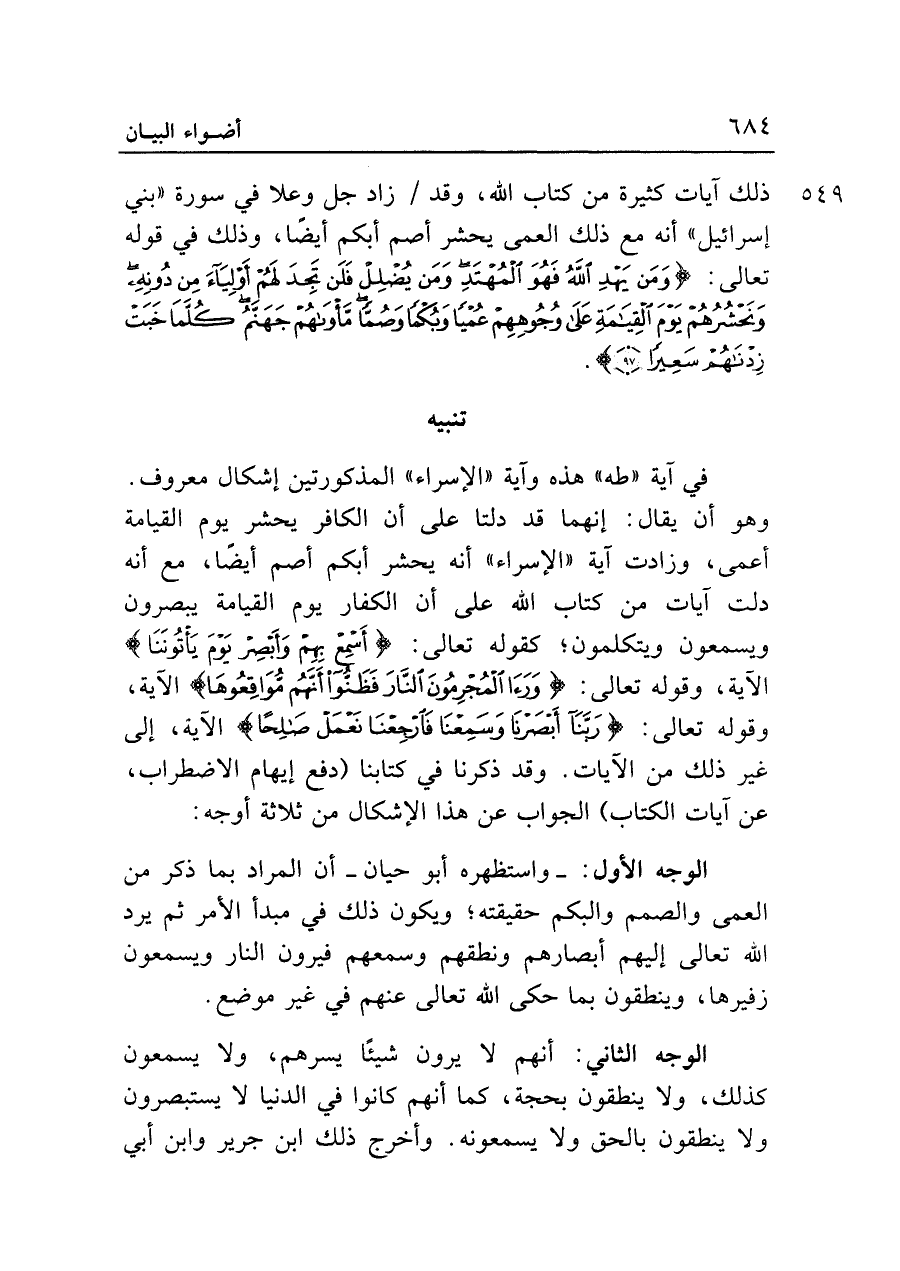 ٦٨٤ أضواء البيان
ذلك آيات كثيرة من كتاب الله، وقد / زاد جل وعلا في سورة «بني ٥٤٩
إسرائيل» أنه مع ذلك العمى يحشر أصم أبكم أيضًا، وذلك في قوله
تعالى: ﴿وَمَن يَهْدِ ٱللَّهُ فَهُوَ ٱلْمُهْتَدِۖ وَمَن يُضْلِلْ فَلَن تَجِدَ لَهُمْ أَوْلِيَآءَ مِن دُونِهِۦۖ
وَنَحْشُرُهُمْ يَوْمَ ٱلْقِيَٰمَةِ عَلَىٰ وُجُوهِهِمْ عُمْيًا وَبُكْمًا وَصُمًّاۖ مَّأْوَىٰهُمْ جَهَنَّمُۖ كُلَّمَا خَبَتْ
زِدْنَٰهُمْ سَعِيرًا ٩٧﴾.
تنبيه
في آية «طه» هذه وآية «الإسراء» المذكورتين إشكال معروف.
وهو أن يقال: إنهما قد دلتا على أن الكافر يحشر يوم القيامة
أعمى، وزادت آية «الإسراء» أنه يحشر أبكم أصم أيضًا، مع أنه
دلت آيات من كتاب الله على أن الكفار يوم القيامة يبصرون
ويسمعون ويتكلمون؛ كقوله تعالى: ﴿أَسْمِعْ بِهِمْ وَأَبْصِرْ يَوْمَ يَأْتُونَنَا﴾
الآية، وقوله تعالى: ﴿وَرَءَا ٱلْمُجْرِمُونَ ٱلنَّارَ فَظَنُّوٓا۟ أَنَّهُم مُّوَاقِعُوهَا﴾ الآية،
وقوله تعالى: ﴿رَبَّنَآ أَبْصَرْنَا وَسَمِعْنَا فَٱرْجِعْنَا نَعْمَلْ صَٰلِحًا﴾ الآية، إلى
غير ذلك من الآيات. وقد ذكرنا في كتابنا (دفع إيهام الاضطراب،
عن آيات الكتاب) الجواب عن هذا الإشكال من ثلاثة أوجه:
الوجه الأول: ـ واستظهره أبو حيان ـ أن المراد بما ذكر من
العمى والصمم والبكم حقيقته؛ ويكون ذلك في مبدأ الأمر ثم يرد
الله تعالى إليهم أبصارهم ونطقهم وسمعهم فيرون النار ويسمعون
زفيرها، وينطقون بما حكى الله تعالى عنهم في غير موضع.
الوجه الثاني: أنهم لا يرون شيئًا يسرهم، ولا يسمعون
كذلك، ولا ينطقون بحجة، كما أنهم كانوا في الدنيا لا يستبصرون
ولا ينطقون بالحق ولا يسمعونه. وأخرج ذلك ابن جرير وابن أبي